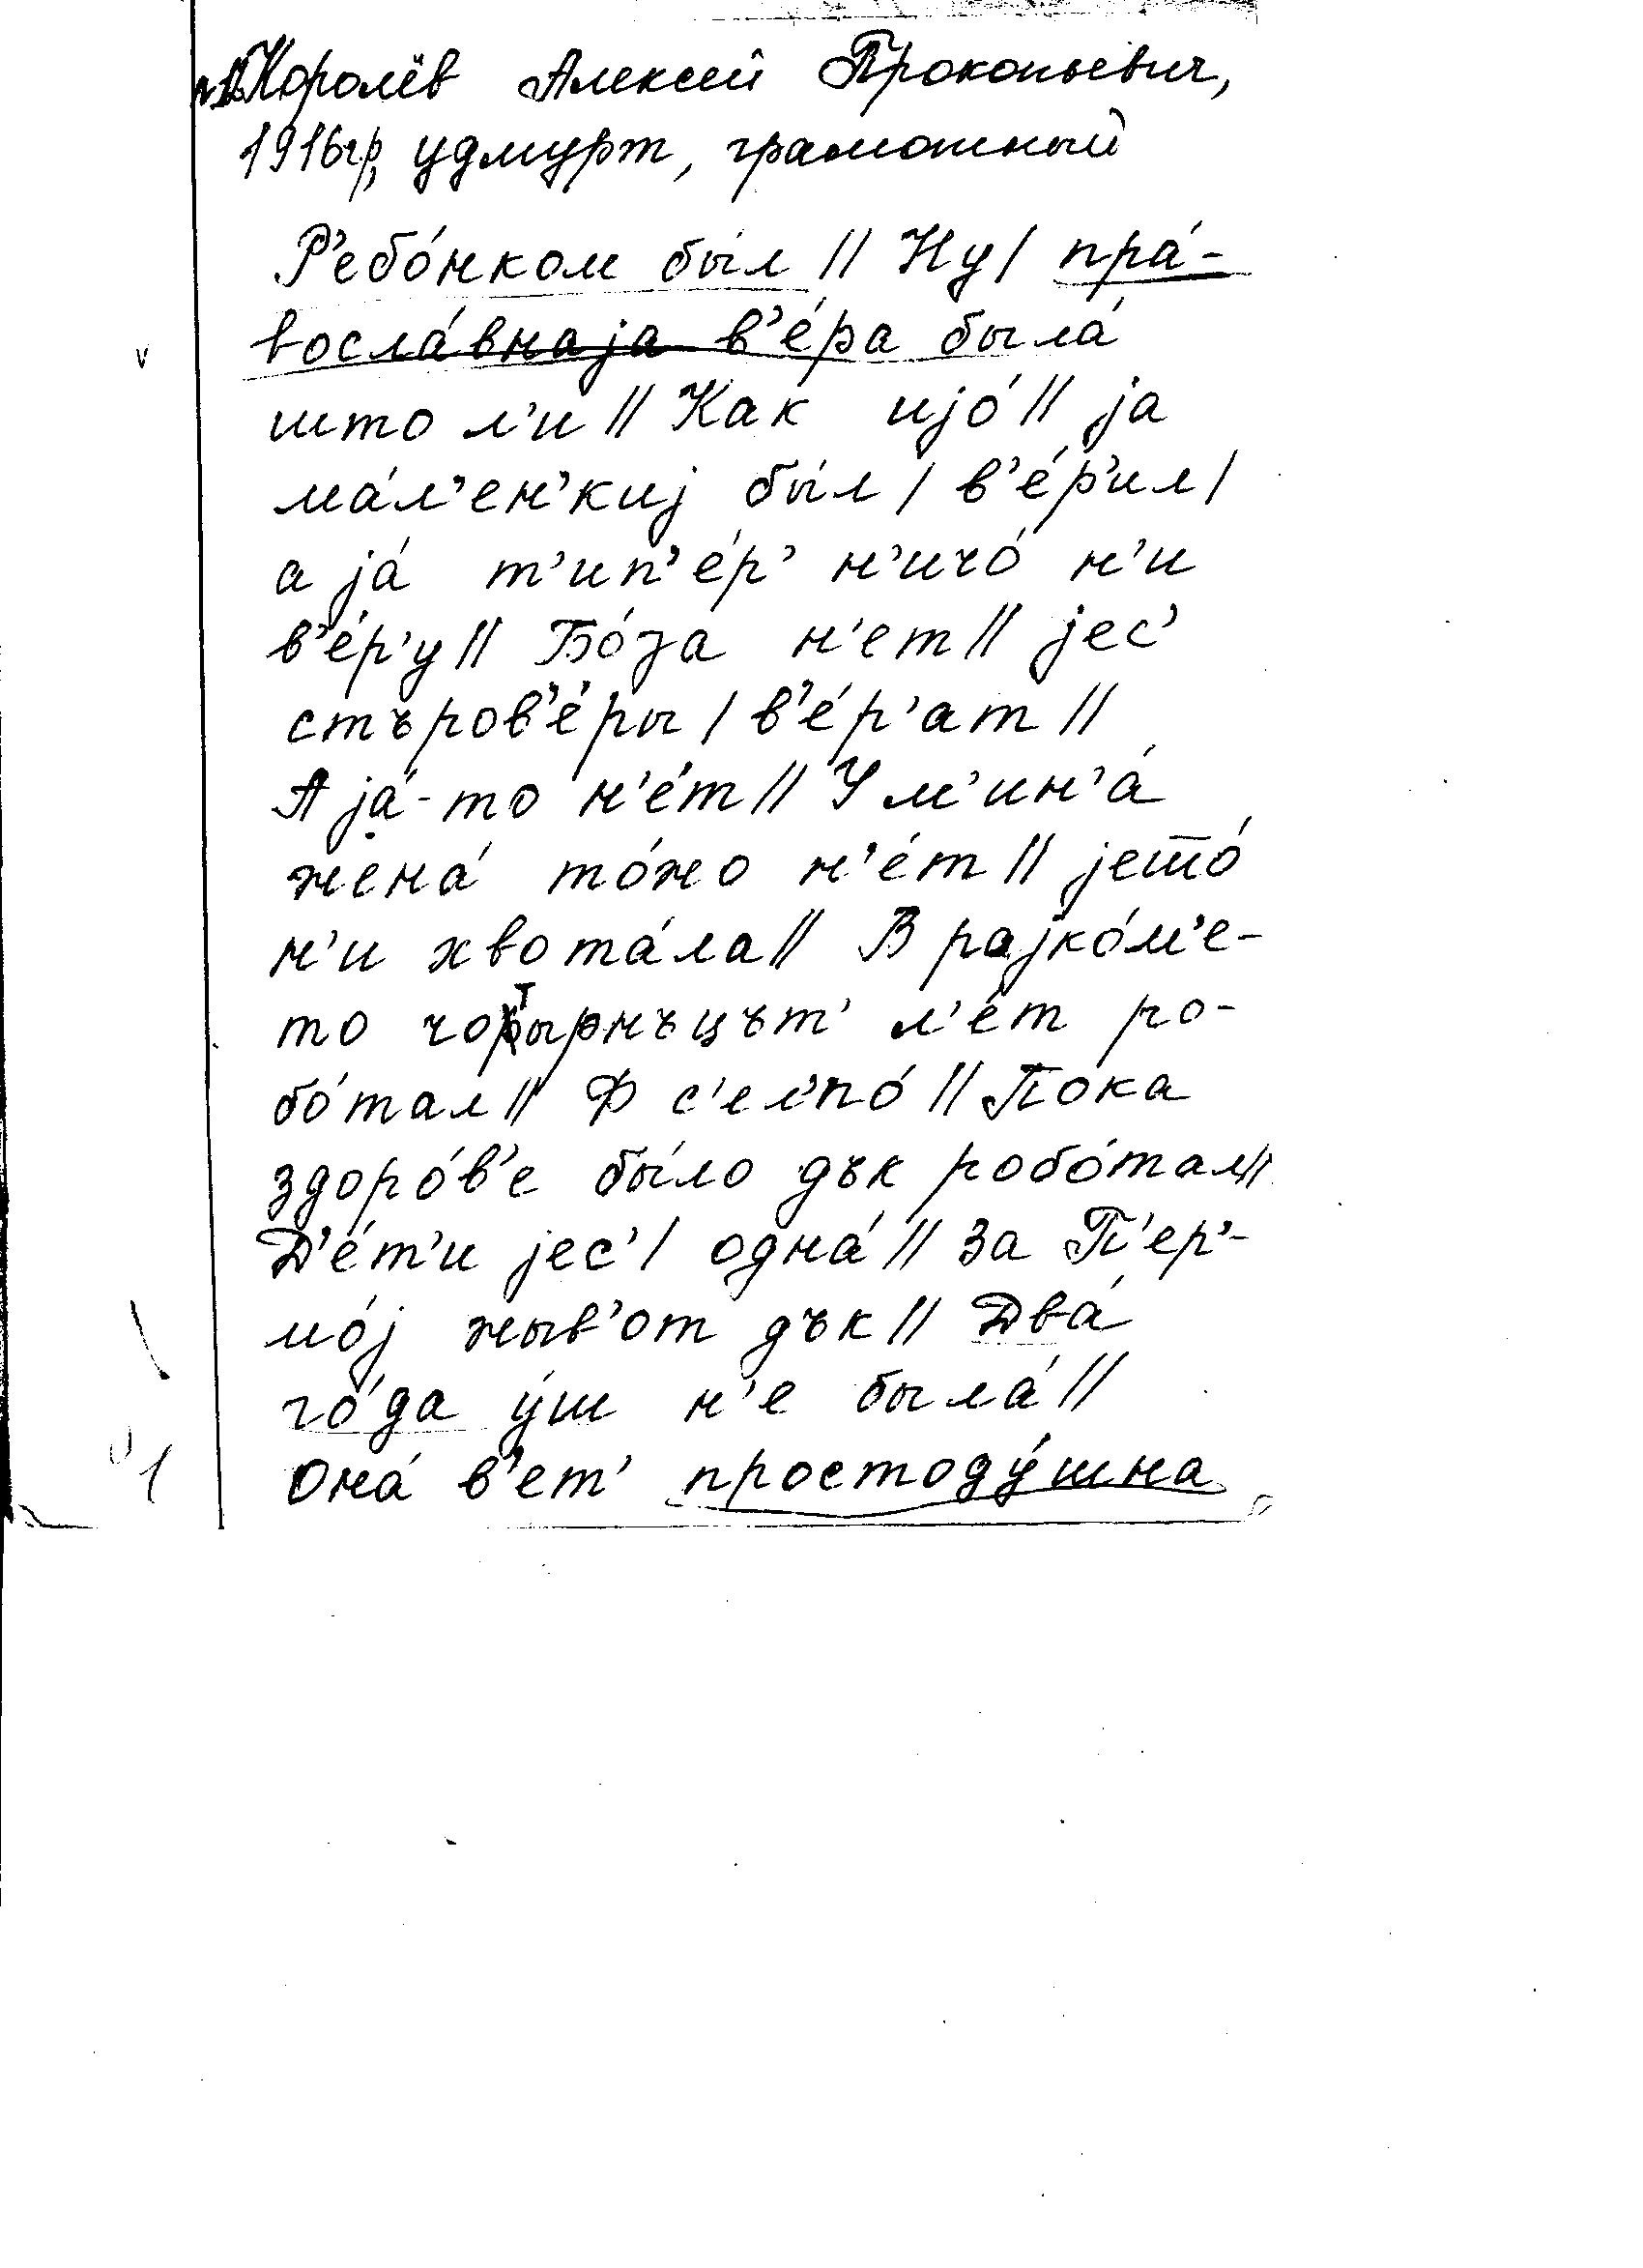 Королёв Алексей Прокопьевич,
1916гр, удмурт, грамотный
Р'ебо́нком бы́л // Ну / пра́-
восла́внаjа в'е́ра была́
што л'и // Как иjо́ // jа
ма́л'ен'киj бы́л / в'е́р'ил /
а jа́ т'ип'е́р' н'ичо́ н'и
в'е́р'у // Бо́γа н'ет // jес'
стъров'е́ры / в'е́р'ат //
А jа́-то н'е́т // У м'ин'а́
жена́ то́жо н'е́т // jето́
н'и хвота́ла // В раjко́м'е-
то чотырнъцът' л'е́т ро-
бо́тал // Ф с'ел'по́ // Пока
здоро́в'е бы́ло дък робо́тал //
Д'е́т'и jес' / одна́ // За П'ер'-
мо́j жыв'от дък // Два́
го́да у́ш н'е была́ //
Она́ в'ет' простоду́шна